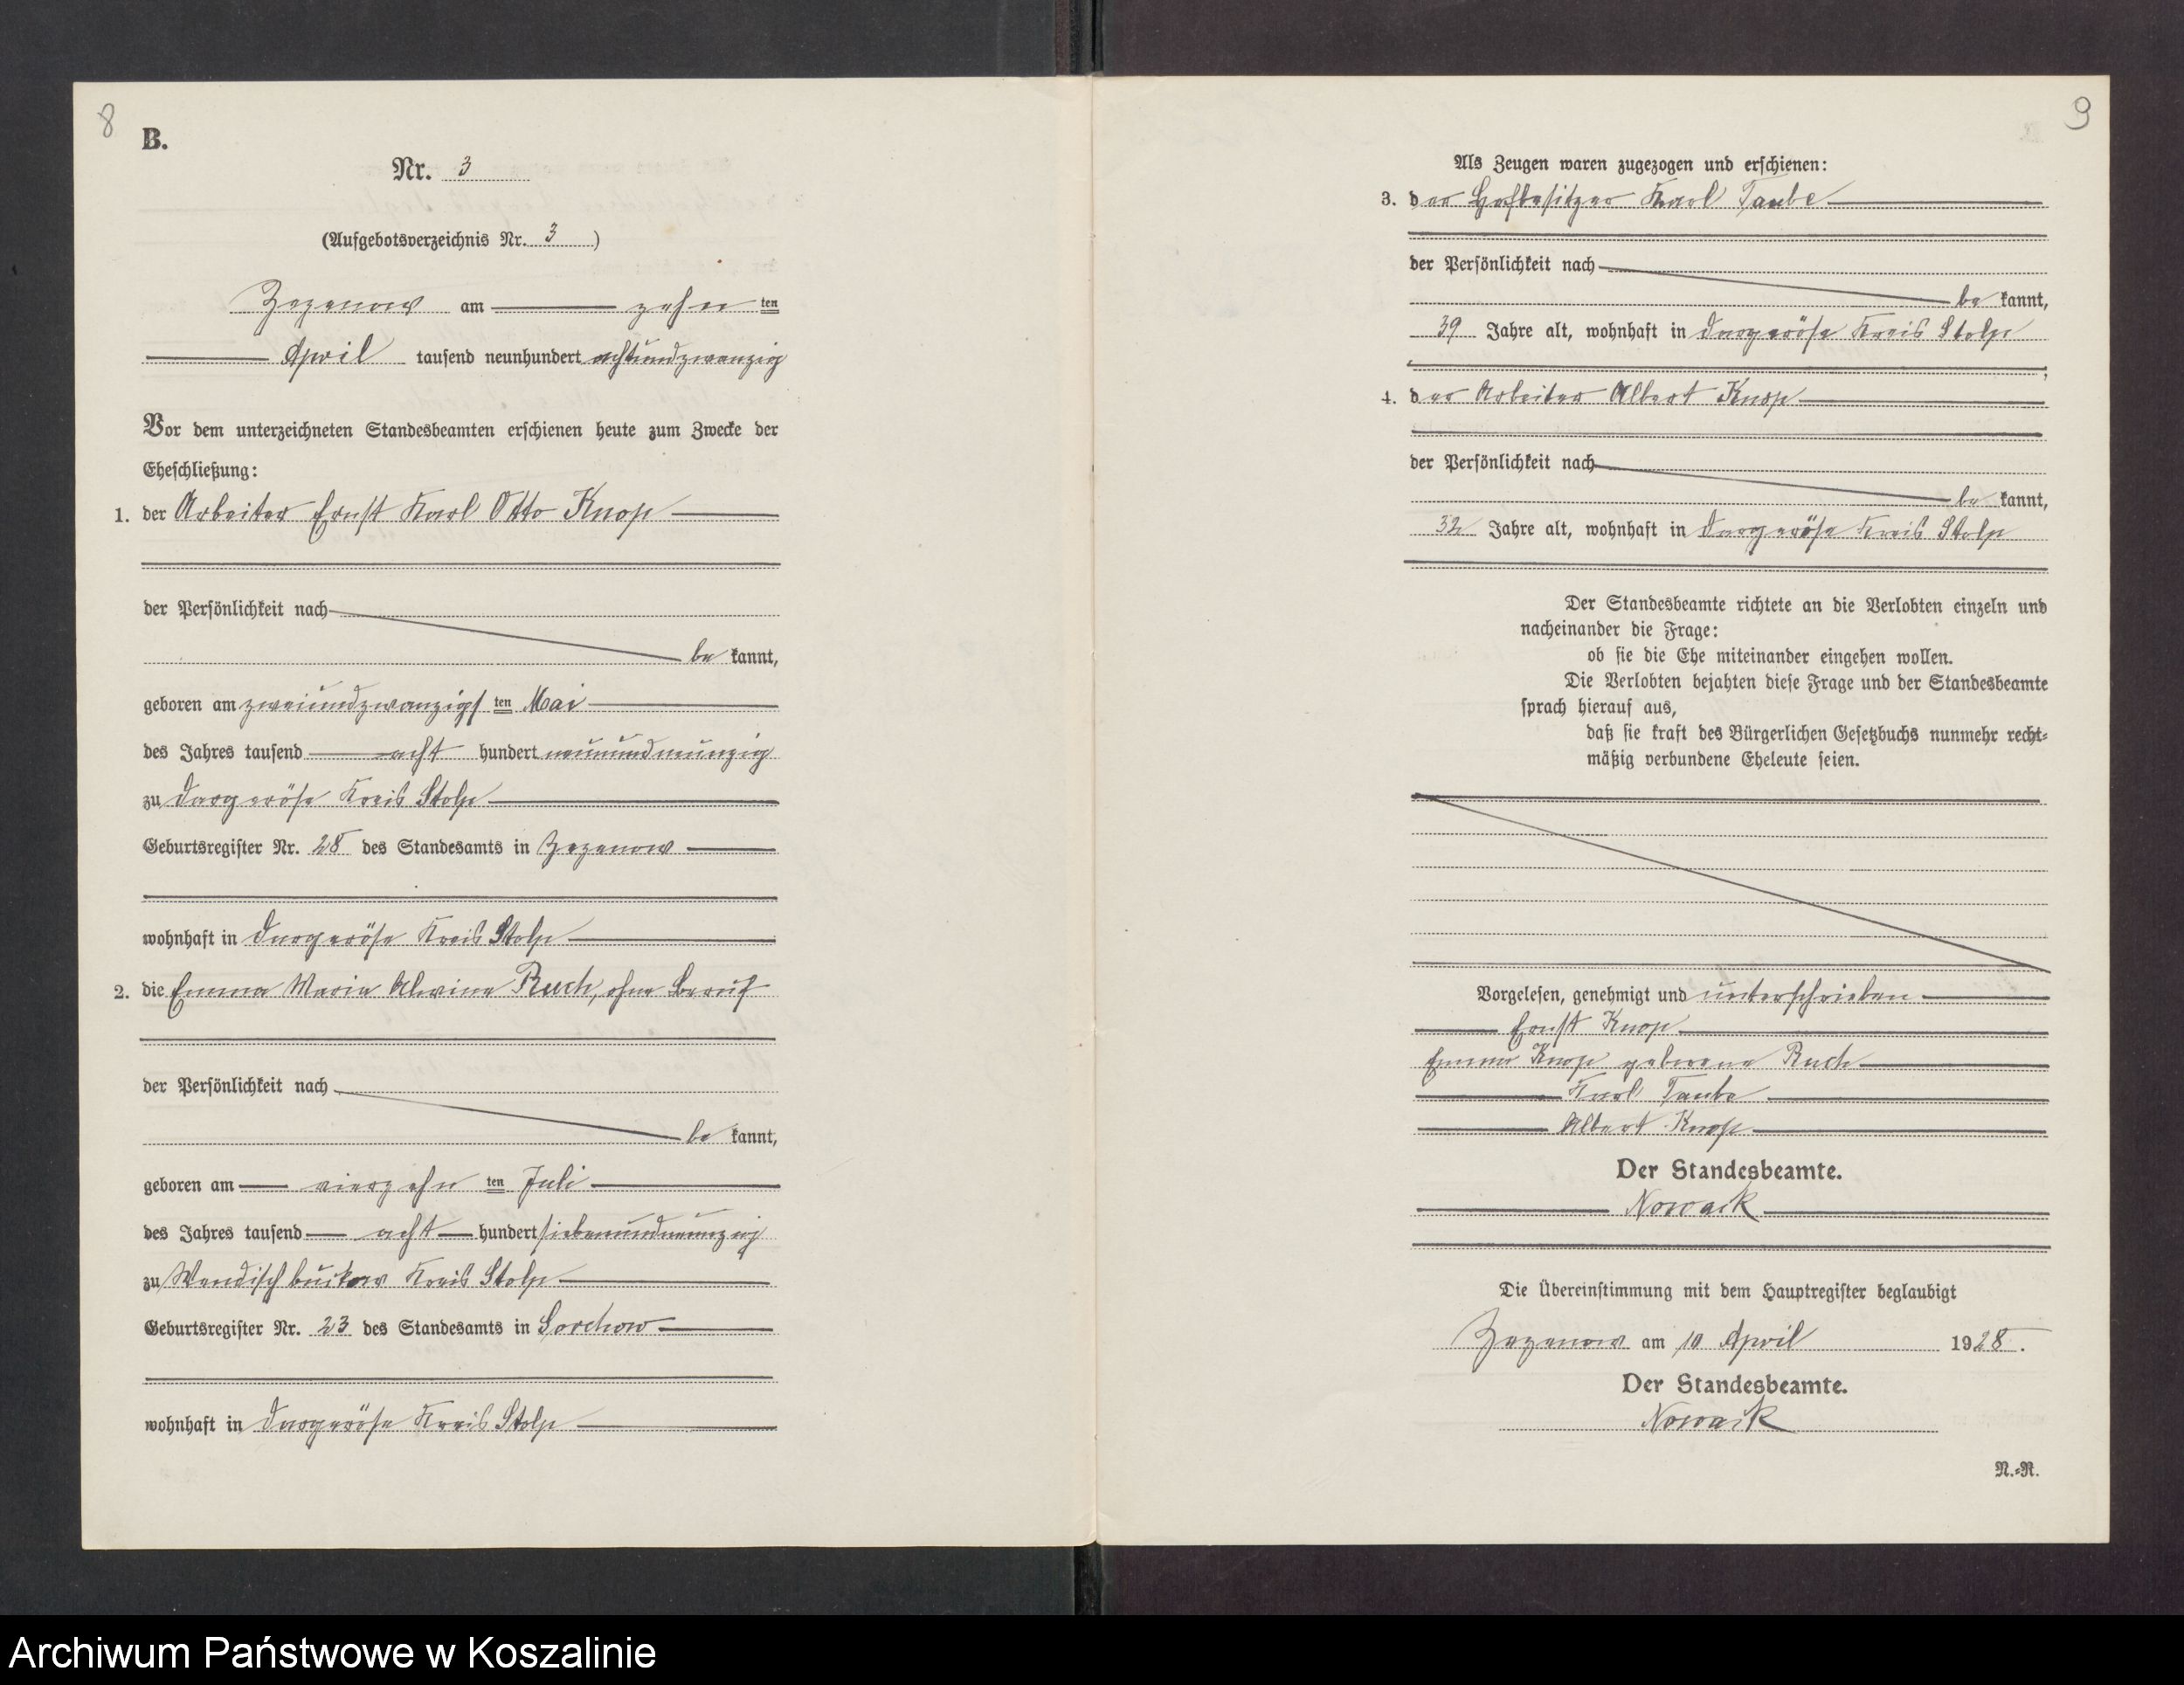 8
B.
Nr. 3
(Aufgebotsverzeichnis Nr. 3)
Zezenow am zehnten
April tausend neunhundert achtundzwanzig
Vor dem unterzeichneten Standesbeamten erschienen heute zum Zwecke der
Eheschließung:
1. der Arbeiter Ernst Karl Otto Knop
der Persönlichkeit nach
be kannt,
geboren am zweiundzwanzigsten Mai
des Jahres tausend acht hundert neunundneunzig
zu Dargeröse Kreis Stolp
Geburtsregister Nr. 28 des Standesamts in Zezenow
wohnhaft in Dargeröse Kreis Stolp
2. die Emma Maria Alwine Ruch, ohne Beruf
der Persönlichkeit nach
be kannt,
geboren am vierzehnten Juli
des Jahres tausend acht hundert siebenundneunzig
zu Wendisch buckow Kreis Stolp
Geburtsregister Nr. 23 des Standesamts in Sorchow
wohnhaft in Dargeröse Kreis Stolp
9
Als Zeugen waren zugezogen und erschienen:
3. der Hofbesitzer Karl Taube
der Persönlichkeit nach
be kannt,
39 Jahre alt, wohnhaft in Dargeröse Kreis Stolp
;
4. der Arbeiter Albert Knop
der Persönlichkeit nach
be kannt,
32 Jahre alt, wohnhaft in Dargeröse Kreis Stolp
Der Standesbeamte richtete an die Verlobten einzeln und
nacheinander die Frage:
ob sie die Ehe miteinander eingehen wollen.
Die Verlobten bejahten diese Frage und der Standesbeamte
sprach hierauf aus,
daß sie kraft des Bürgerlichen Gesetzbuchs nunmehr recht-
mäßig verbundene Eheleute seien.
Vorgelesen, genehmigt und unterschrieben
Ernst Knop
Emma Knop geborene Ruch
Karl Taube
Albert Knop
Der Standesbeamte.
Nowack
Die Übereinstimmung mit dem Hauptregister beglaubigt
Zezenow am 10 April 1928.
Der Standesbeamte.
Nowack
N.-R.
Archiwum Państwowe w Koszalinie